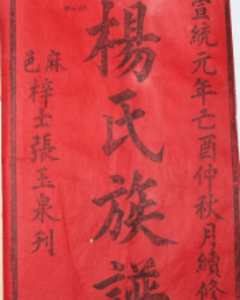 宣統元年己酉仲秋月續修
楊氏族譜
麻邑梓士張玉泉刋